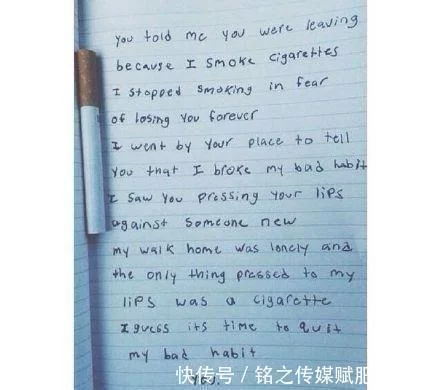 you told me you were leaving
because I smoke cigarettes
I stopped smoking in fear
of losing you forever
I went by your place to tell
you that I broke my bad habit
I saw you pressing your lips
against someone new
my walk home was lonely and
the only thing pressed to my
lips was a cigarette
I guess its time to quit
my bad habit
you.
快传号/铭之传媒赋肥